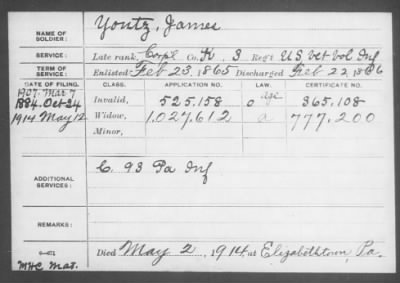 NAME OF SOLDIER: Yontz, James
SERVICE: Late rank, Corp'l Co. K 3 Reg't U.S. Vet Vol Inf
TERM OF SERVICE: Enlisted Feb 23, 1865 Discharged Feb 22, 1866
DATE OF FILING. CLASS. APPLICATION NO. LAW. CERTIFICATE NO.
1907. Mar 7 age
1884. Oct 24 Invalid, 525.158 365.108
1914 May 12 Widow, 1.027.612 a 777.200
Minor,
ADDITIONAL SERVICES: C. 93 Pa Inf
REMARKS:
Died May 2, 1914, at Elizabethtown, Pa.
MHC Mat.